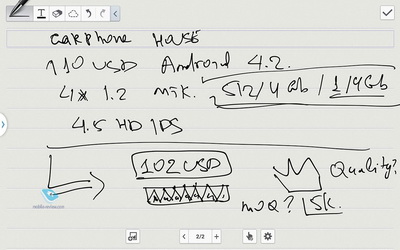 CARPHONE HOUSE
110 USD Android 4.2.
4x 1.2 MTK. 512/4Gb / 1/4Gb
4.5 HD IPS
102 USD
Quality?
MOQ? 5K.
mobile-review.com
2/2